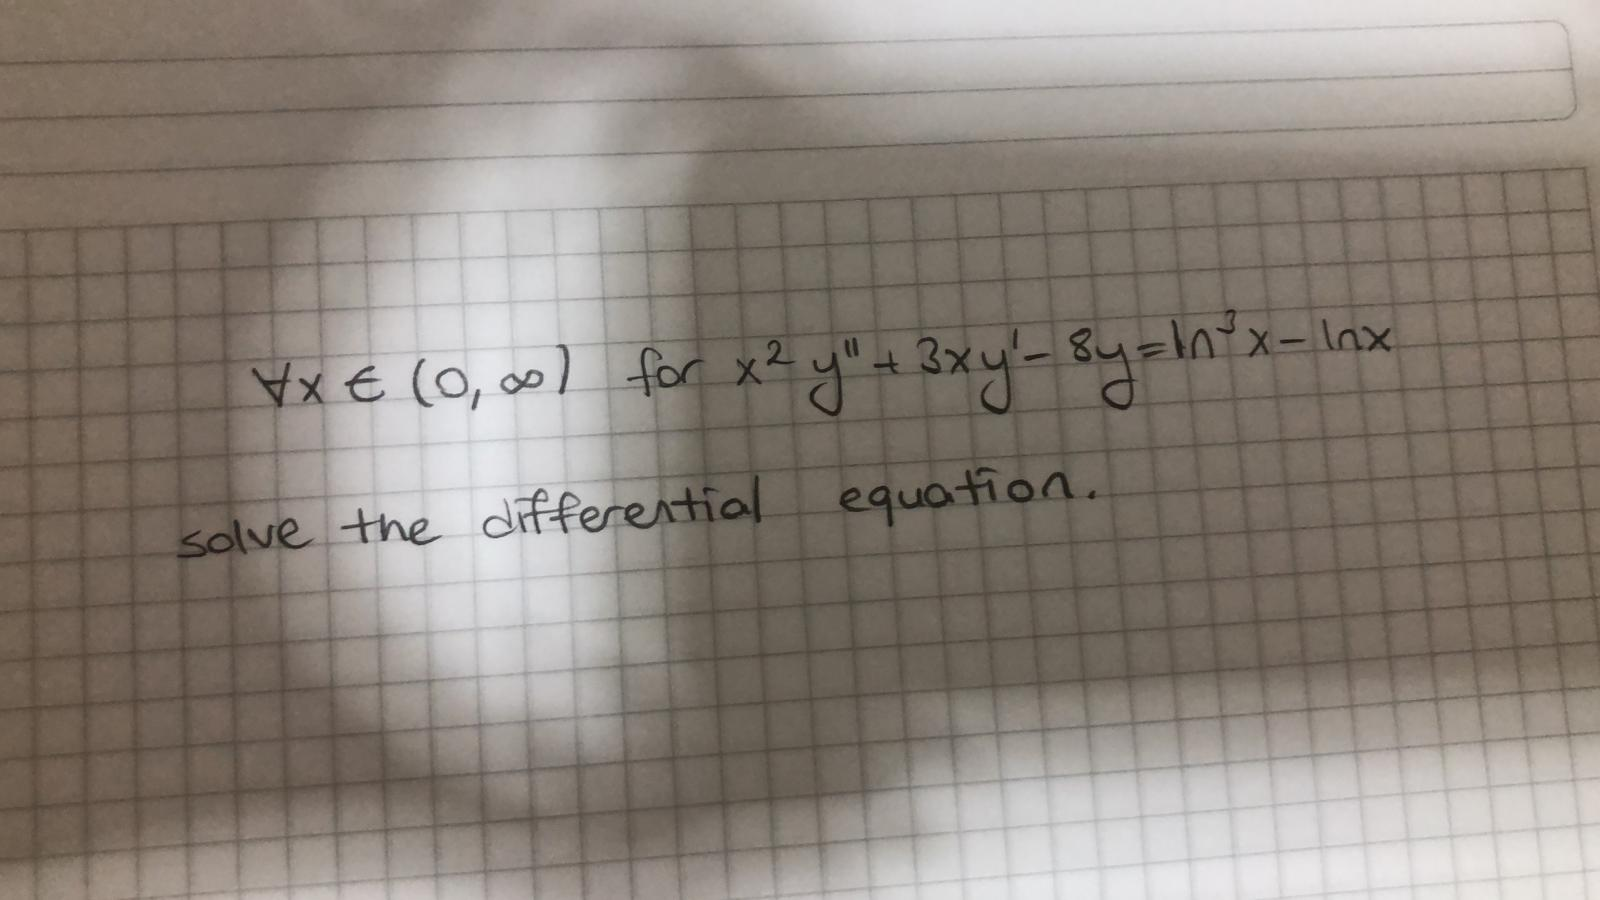 ∀x ∈ (0, ∞) for x² y'' + 3xy' - 8y = ln³x - lnx
solve the differential equation.